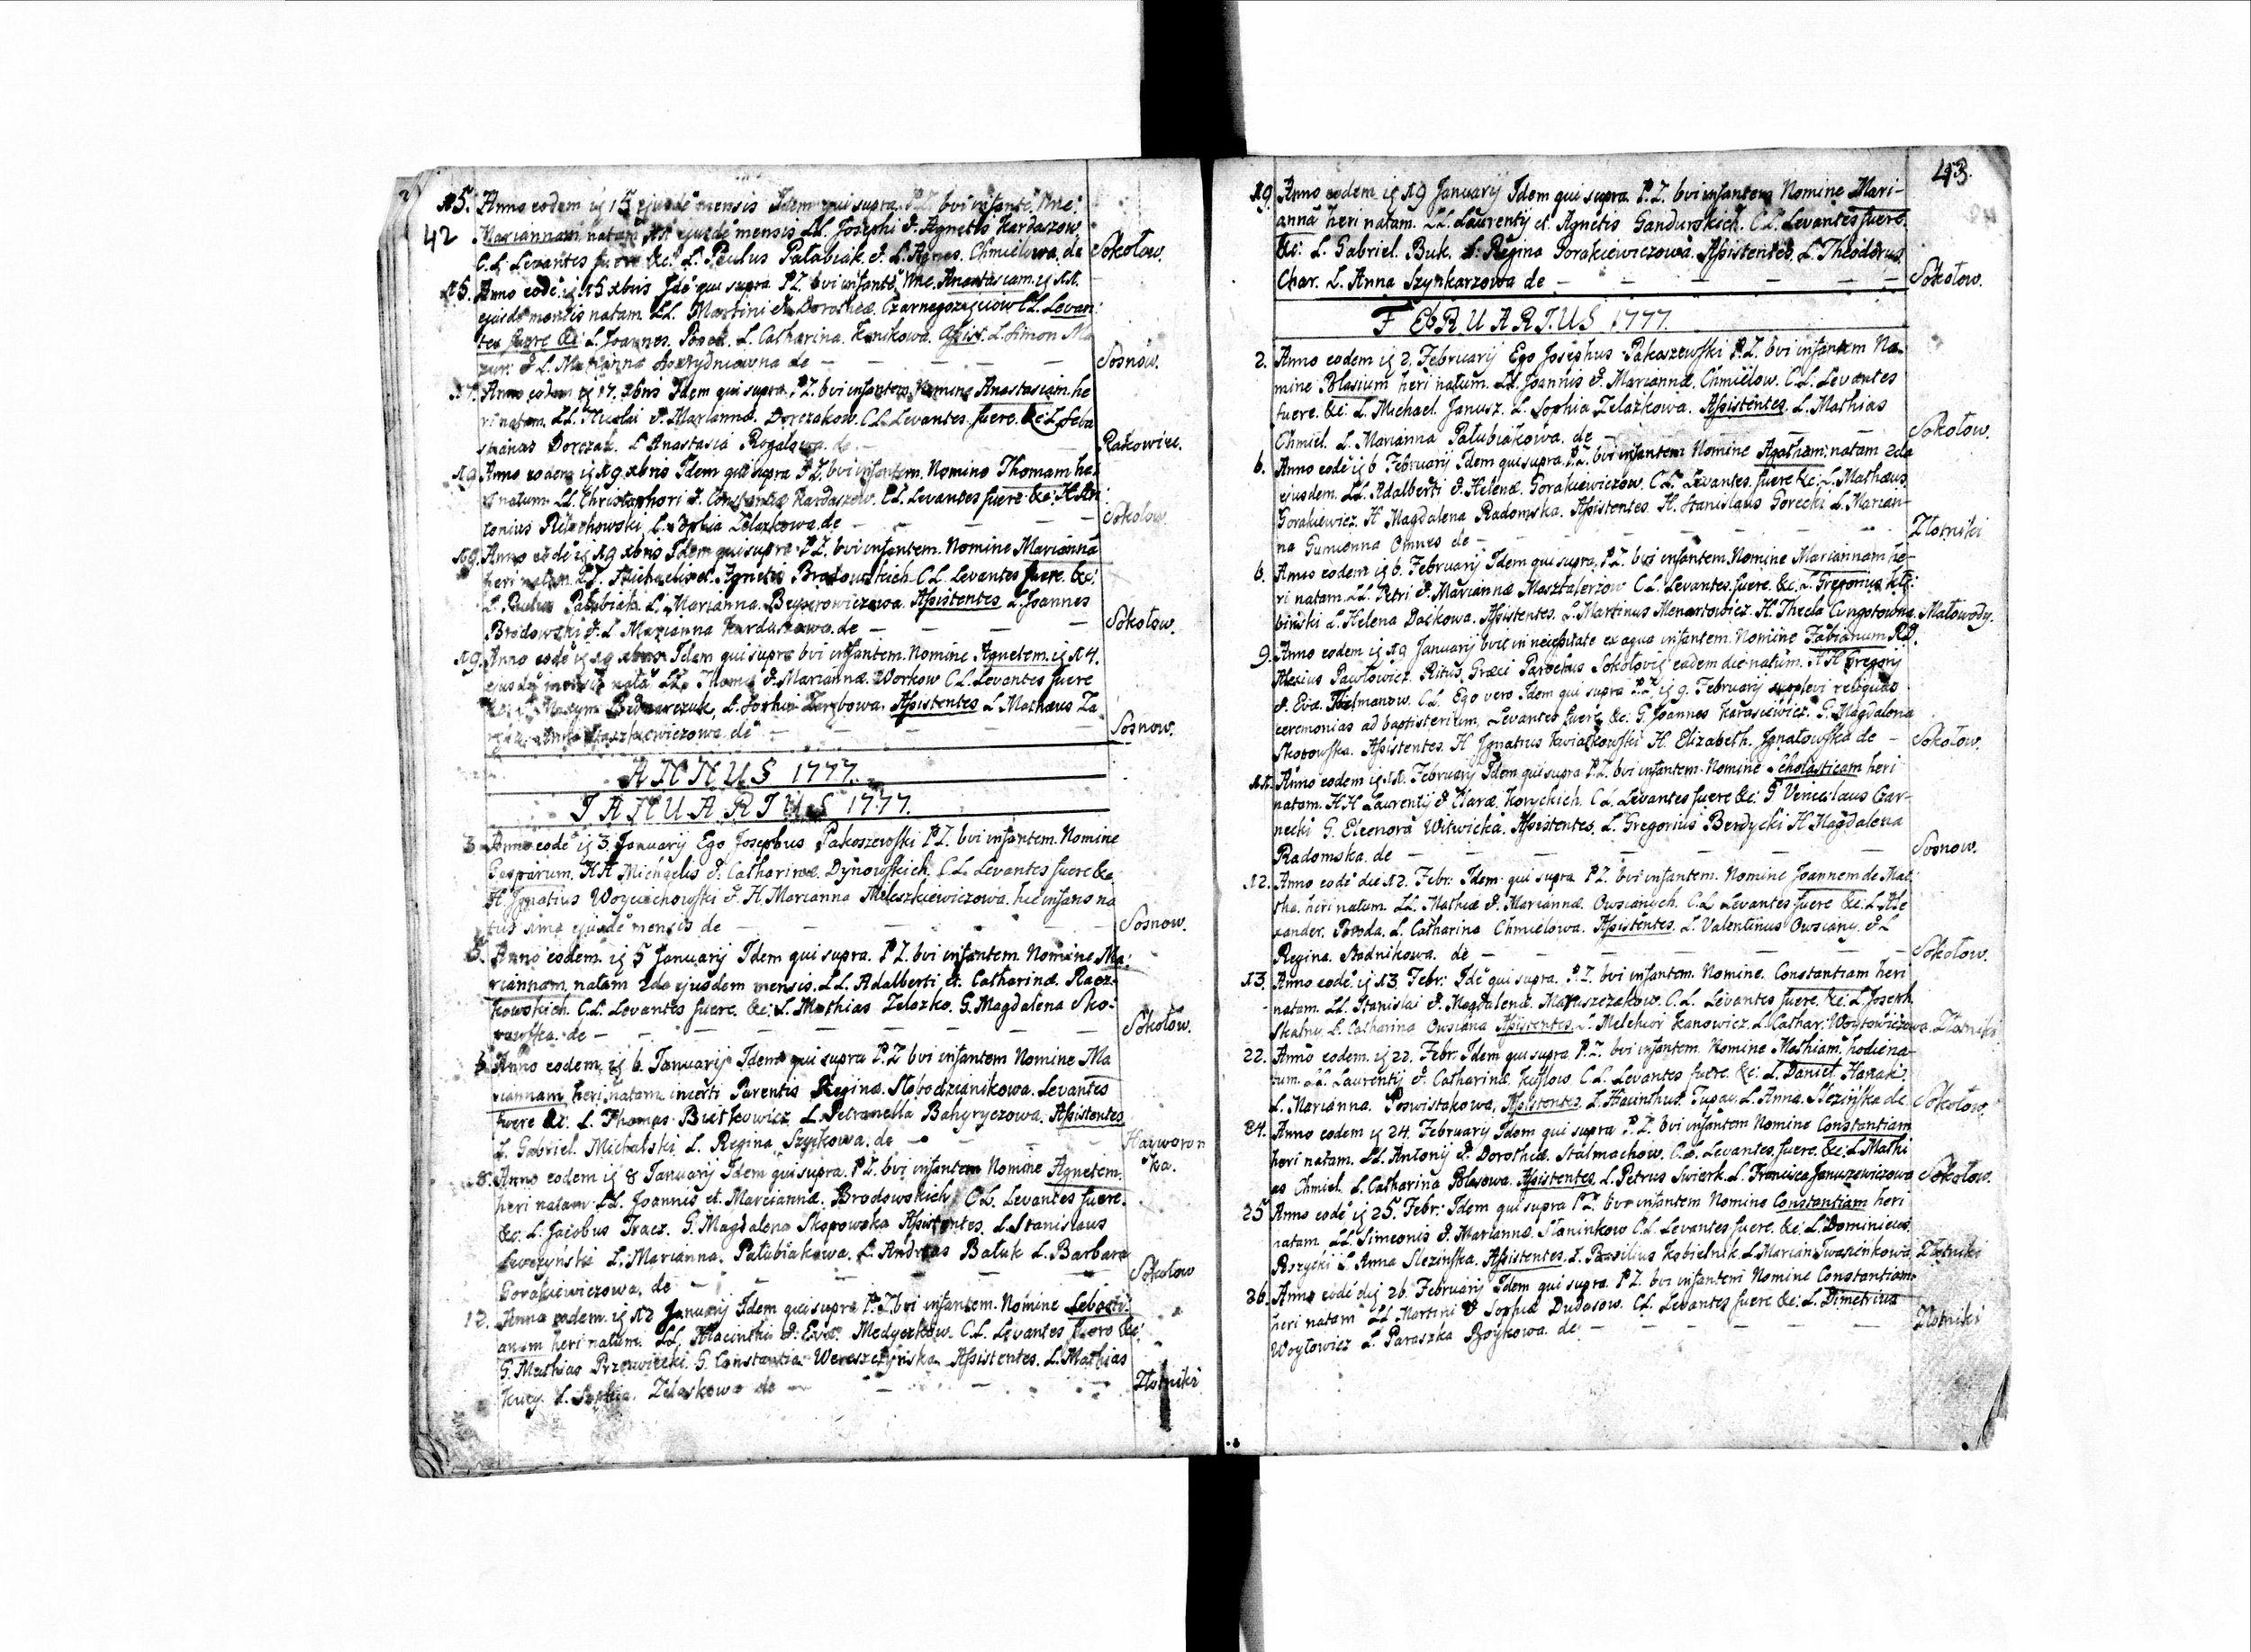 42
15. Anno eodem ig 15 ejusdē mensis Idem qui supra. P.Z. bvi infantē Nne:
Mariannam natam 11 ejusdē mensis LL. Josephi & Agnetis Kardaszow
C.L. Levantes fuere &c: L. Paulus Pałabiak & L. Agnes. Chmielowa. de Sokołow.
15. Anno eodē ig 15 xbris Idē qui supra P.Z. bvi infantē Nne. Anastasiam. ig 11.
ejusdē mensis natam. LL. Martini & Dorotheæ. C.L. Levan:
tes fuere &c: L. Joannes. L. Catharina. Konikowa. Assist. L. Simon Ma
zur: & L. Marianna de — — — — Sosnow.
17. Anno eodem ig 17. xbris Idem qui supra. P.Z. bvi infantem. Nomine Anastasiam. he
ri natam. LL. Nicolai & Mariannæ. Dorczakow. C.L. Levantes. fuere. &c: L. Seba
stianus Dorczak. L. Anastasia Rogalowa. de — Rakowiec.
19. Anno eodem ig 19 xbris Idem qui supra P.Z. bvi infantem. Nomine Thomam he
ri natum. LL. Christophori & Constantiæ Kardaszow. C.L. Levantes fuere &c: H. An
tonius L. Sophia Zelazkowa. de — — — — Sokolow.
19. Anno eodē ig 19 xbris Idem qui supra P.Z. bvi infantem. Nomine Marianna
heri natam. LL. Michaelis et Agnetis Brodowskich C.L. Levantes fuere. &c:
L. Paulus Pałubiak. L. Marianna. Beyserowiczowa. Assistentes L. Joannes
Brodowski & L. Marianna Kardaszowa. de — — — — Sokołow.
19. Anno eodē ig 19 xbris Idem qui supra bvi infantem. Nomine Agnetem. ig 14.
ejusdē mensis natā LL. Thomæ & Mariannæ. Workow C.L. Levantes fuere
Maxym Bednarczuk, L. Assistentes L. Mathæus Za
de — — — — Sosnow.
ANNUS 1777.
JANUARIUS 1777.
3. Anno eodē ig 3. January Ego Josephus Pakoszewski P.Z. bvi infantem. Nomine
Gasparum. HH Michaelis & Catharinæ. Dynowskich. C.L. Levantes fuere &c.
H. Ignatius Woyciechowski & H. Marianna Mileszkiewiczowa. hic infans na
tus ima ejusdē mensis de — — — — Sosnow.
5. Anno eodem. ig 5 January Idem qui supra. P.Z. bvi infantem. Nomine Ma:
riannam. natam 2da ejusdem mensis. LL. Adalberti et. Catharinæ. Racz-
kowskich. C.L. Levantes fuere. &c: L. Mathias Zelazko. G. Magdalena Sko:
rowska. de — — — — Sokołow.
6. Anno eodem. ig 6. January Idem qui supra P.Z. bvi infantem Nomine Ma
riannam heri natam incerti Parentis Reginæ. Słobodzianikowa. Levantes
fuere &c: L. Thomas. Butkowicz. L. Petronella Bahyryczowa. Assistentes
L. Gabriel. Michalski. L. Regina. Szyckowa. de — — — Hayworon
ka.
8. Anno eodem ig 8 January Idem qui supra. P.Z. bvi infantem Nomine Agnetem.
heri natam. LL. Joannis et. Mariannæ. Brodowskich C.L. Levantes fuere.
&c: L. Jacobus Tracz. G. Magdalena Skopowska Assistentes. L. Stanislaus
L. Marianna. Pałubiakowa. L. Andreas Bałuk L. Barbara
Gorakiewiczowa. de — — — — Sokołow
12. Anno eodem. ig 12 January Idem qui supra P.Z. bvi infantem. Nomine Sebasti:
anum heri natum. LL. Hiacinthi & Evæ. Medyczkow. C.L. Levantes fuere &c:
G. Mathias Przewiecki. G. Constantia Wereszczyńska. Assistentes. L. Mathias
Kucy. L. Sophia. Zelaskowa de — — — — Złotniki
43.
19. Anno eodem. ig 19 January Idem qui supra. P.Z. bvi infantem Nomine Mari-
anna heri natam. LL. Laurentij et. Agnetis Gandurskich. C.L. Levantes fuere.
&c: L. Gabriel. Buk. L. Regina Gorakiewiczowa. Assistentes. L. Theodorus
Char. L. Anna Szynkarzowa de — — — — — Sokołow.
FEBRUARIUS 1777.
2. Anno eodem ig 2. February Ego Josephus Pakoszewski P.Z. bvi infantem No-
mine Blasium heri natum. LL. Joannis & Mariannæ. Chmiēlow. C.L. Levantes
fuere. &c: L. Michael. Janusz. L. Sophia Zelazkowa. Assistentes. L. Mathias
Chmiel. L. Marianna Pałubiakowa. de — — — Sokołow.
6. Anno eodē ig 6 February Idem qui supra. P.Z. bvi infantem Nomine Agatham. natam 2da
ejusdem. LL. Adalberti & Helenæ. Gorakiewiczow. C.L. Levantes. fuere &c: L. Mathæus
Gorakiewicz. H. Magdalena Radomska. Assistentes. H. Stanislaus Gorecki L. Marian-
na Gumionna Omnes de — — — — Złotniki
6. Anno eodem. ig 6. February Idem qui supra. P.Z. bvi infantem. Nomine Mariannam he-
ri natam. LL. Petri & Mariannæ Masztalerzow C.L. Levantes. fuere. &c: L. Gregorius
L. Helena Daćkowa. Assistentes. L. Martinus Menartowicz. H. Thecla Małowody.
9. Anno eodem. ig 19 January bvit in neccssitate ex aqua infantem. Nomine Fabianum R.D.
Alexius Pawłowicz. Ritus. Græci Parochus Sokołovig eadem die natum. HH Gregorij
& Eva. C.L. Ego vero Idem qui supra P.Z. ig 9. February supplevi reliquas
ceremonias ad baptisterium. Levantes fuere &c: G. Joannes Karasiewicz. G. Magdalena
Skopowska. Assistentes. H Ignatius Kwiatkowski H. Elizabeth. Ignatowska de — Sokołow.
11. Anno eodem ig 11. February Idem qui supra. P.Z. bvi infantem. Nomine Scholasticam heri
natam. HH Laurentij & Claræ. Koryckich. C.L. Levantes fuere &c: G Venceslaus Gar-
necki G. Eleonora Witwicka. Assistentes. L. Gregorius Berdycki H Magdalena
Radomska. de — — — — — Sosnow.
12. Anno eodē die 12. Febr: Idem qui supra P.Z. bvi infantem. Nomine Joannem de Mat-
tha. heri natum. LL. Mathiæ & Mariannæ. Owsianych. C.L. Levantes fuere &c: L. Ale
xander. Poroda. L. Catharina Chmielowa. Assistentes. L. Valentinus Owsiany. & L
Regina. Stadnikowa. de — — — — — Sokołow.
13. Anno eodē. ig 13 Febr: Idē qui supra. P.Z. bvi infantem. Nomine. Constantiam heri
natam. LL. Stanislai & Magdalenæ. Maruszczakow. C.L. Levantes fuere. &c: L. Joseph.
Skalny. L. Catharina Owsiana Assistentes. L. Melchior Kanowicz. L. Cathar: Woytowiczowa. Złotniki
22. Anno eodem. ig 22. Febr: Idem qui supra. P.Z. bvi infantem. Nomine Mathiam. hodie na-
tum. LL. Laurentij & Catharinæ. Kuflow. C.L. Levantes fuere. &c: L. Daniel.
L. Marianna. Poswistakowa, Assistentes. L. Hiacinthus. Tupay. L. Anna. Slezińska de Sokołow.
24. Anno eodem ig 24. February Idem qui supra P.Z. bvi infantem Nomine Constantiam
heri natam. LL. Antonij & Dorotheæ. Stalmachow. C.L. Levantes. fuere. &c: L. Mathi
as Chmiel. L. Catharina Blasowa. Assistentes. L. Petrus Swierk. L. Francisca Januszewiczowa Sokołow.
25 Anno eodē ig 25. Febr: Idem qui supra P.Z. bvi infantem Nomine Constantiam heri
natam. LL. Simeonis & Mariannæ. Słaninkow C.L. Levantes fuere. &c: L. Dominicus.
L. Anna Slezińska. Assistentes. L. Basilius Kobielnik. L. Marian: Złotniki
26. Anno eodē dig 26. February Idem qui supra. P.Z. bvi infantem Nomine Constantiam
heri natam LL Martini & Sophiæ Dudasow. C.L. Levantes fuere &c: L. Dimetrius
Woytowicz L. Paraszka Boykowa. de — — — — Złotniki